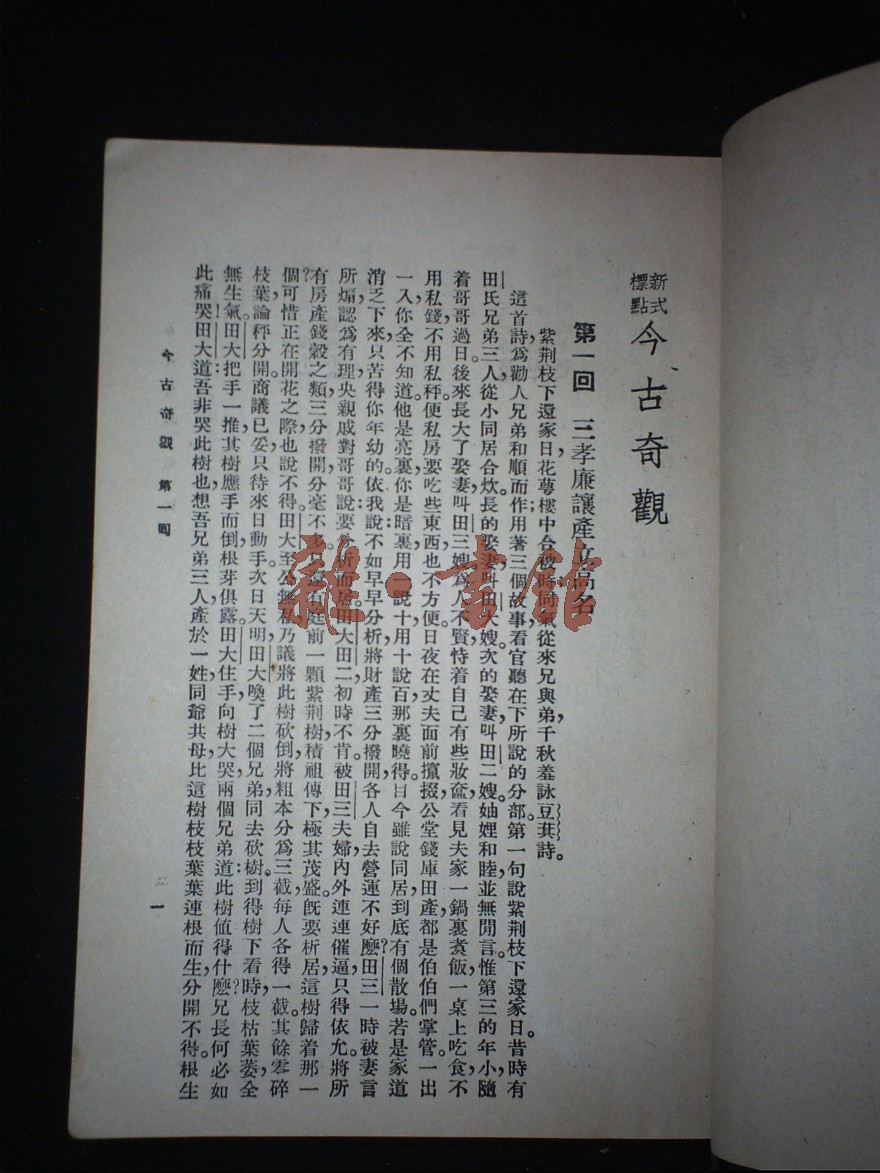 新式標點 今古奇觀
第一回 三孝廉讓產立高名
紫荊枝下還家日，花萼樓中合被時，同氣從來兄與弟，千秋羞詠豆萁詩。
這首詩爲勸人兄弟和順而作，用著三個故事，看官聽在下所說的分部。第一句說紫荊枝下還家日。昔時有
田氏兄弟三人，從小同居合炊。長的娶妻，叫田大嫂。次的娶妻，叫田二嫂。妯娌和睦，並無閒言。惟第三的年小，隨
着哥哥過日。後來長大了，娶妻，叫田三嫂，爲人不賢，恃着自己有些妝奩，看見夫家一鍋裏煑飯，一桌上吃食，不
用私錢，不用私秤。便私房要吃些東西，也不方便。日夜在丈夫面前攛掇，公堂錢庫田產，都是伯伯們掌管。一出
一入，你全不知道。他是亮裏，你是暗裏。用一說十，用十說百，那裏曉得。目今雖說同居，到底有個散塲。若是家道
消乏下來，只苦得你年幼的。依我說：不如早早分析，將財產三分撥開，各人自去營運不好麽？田三一時被妻言
所煽，認爲有理，央親戚對哥哥說：要分析而居。田大田二初時不肯。被田三夫婦內外連連催逼，只得依允，將所
有房產錢穀之類，三分撥開，分毫不多，只這有庭前一顆紫荊樹，積祖傳下，極其茂盛。旣要析居，這樹歸着那一
個？可惜正在開花之際，也說不得。田大至公無私，乃議將此樹砍倒，將粗本分爲三截，每人各得一截，其餘零碎
枝葉，論秤分開。商議已妥，只待來日動手。次日天明，田大喚了二個兄弟，同去砍樹：到得樹下看時，枝枯葉萎，全
無生氣。田大把手一推，其樹應手而倒，根芽俱露。田大住手，向樹大哭，兩個兄弟道：此樹値得什麽？兄長何必如
此痛哭！田大道：吾非哭此樹也，想吾兄弟三人，產於一姓，同爺共母，比這樹枝枝葉葉，連根而生，分開不得。根生
今古奇觀 第一回
一